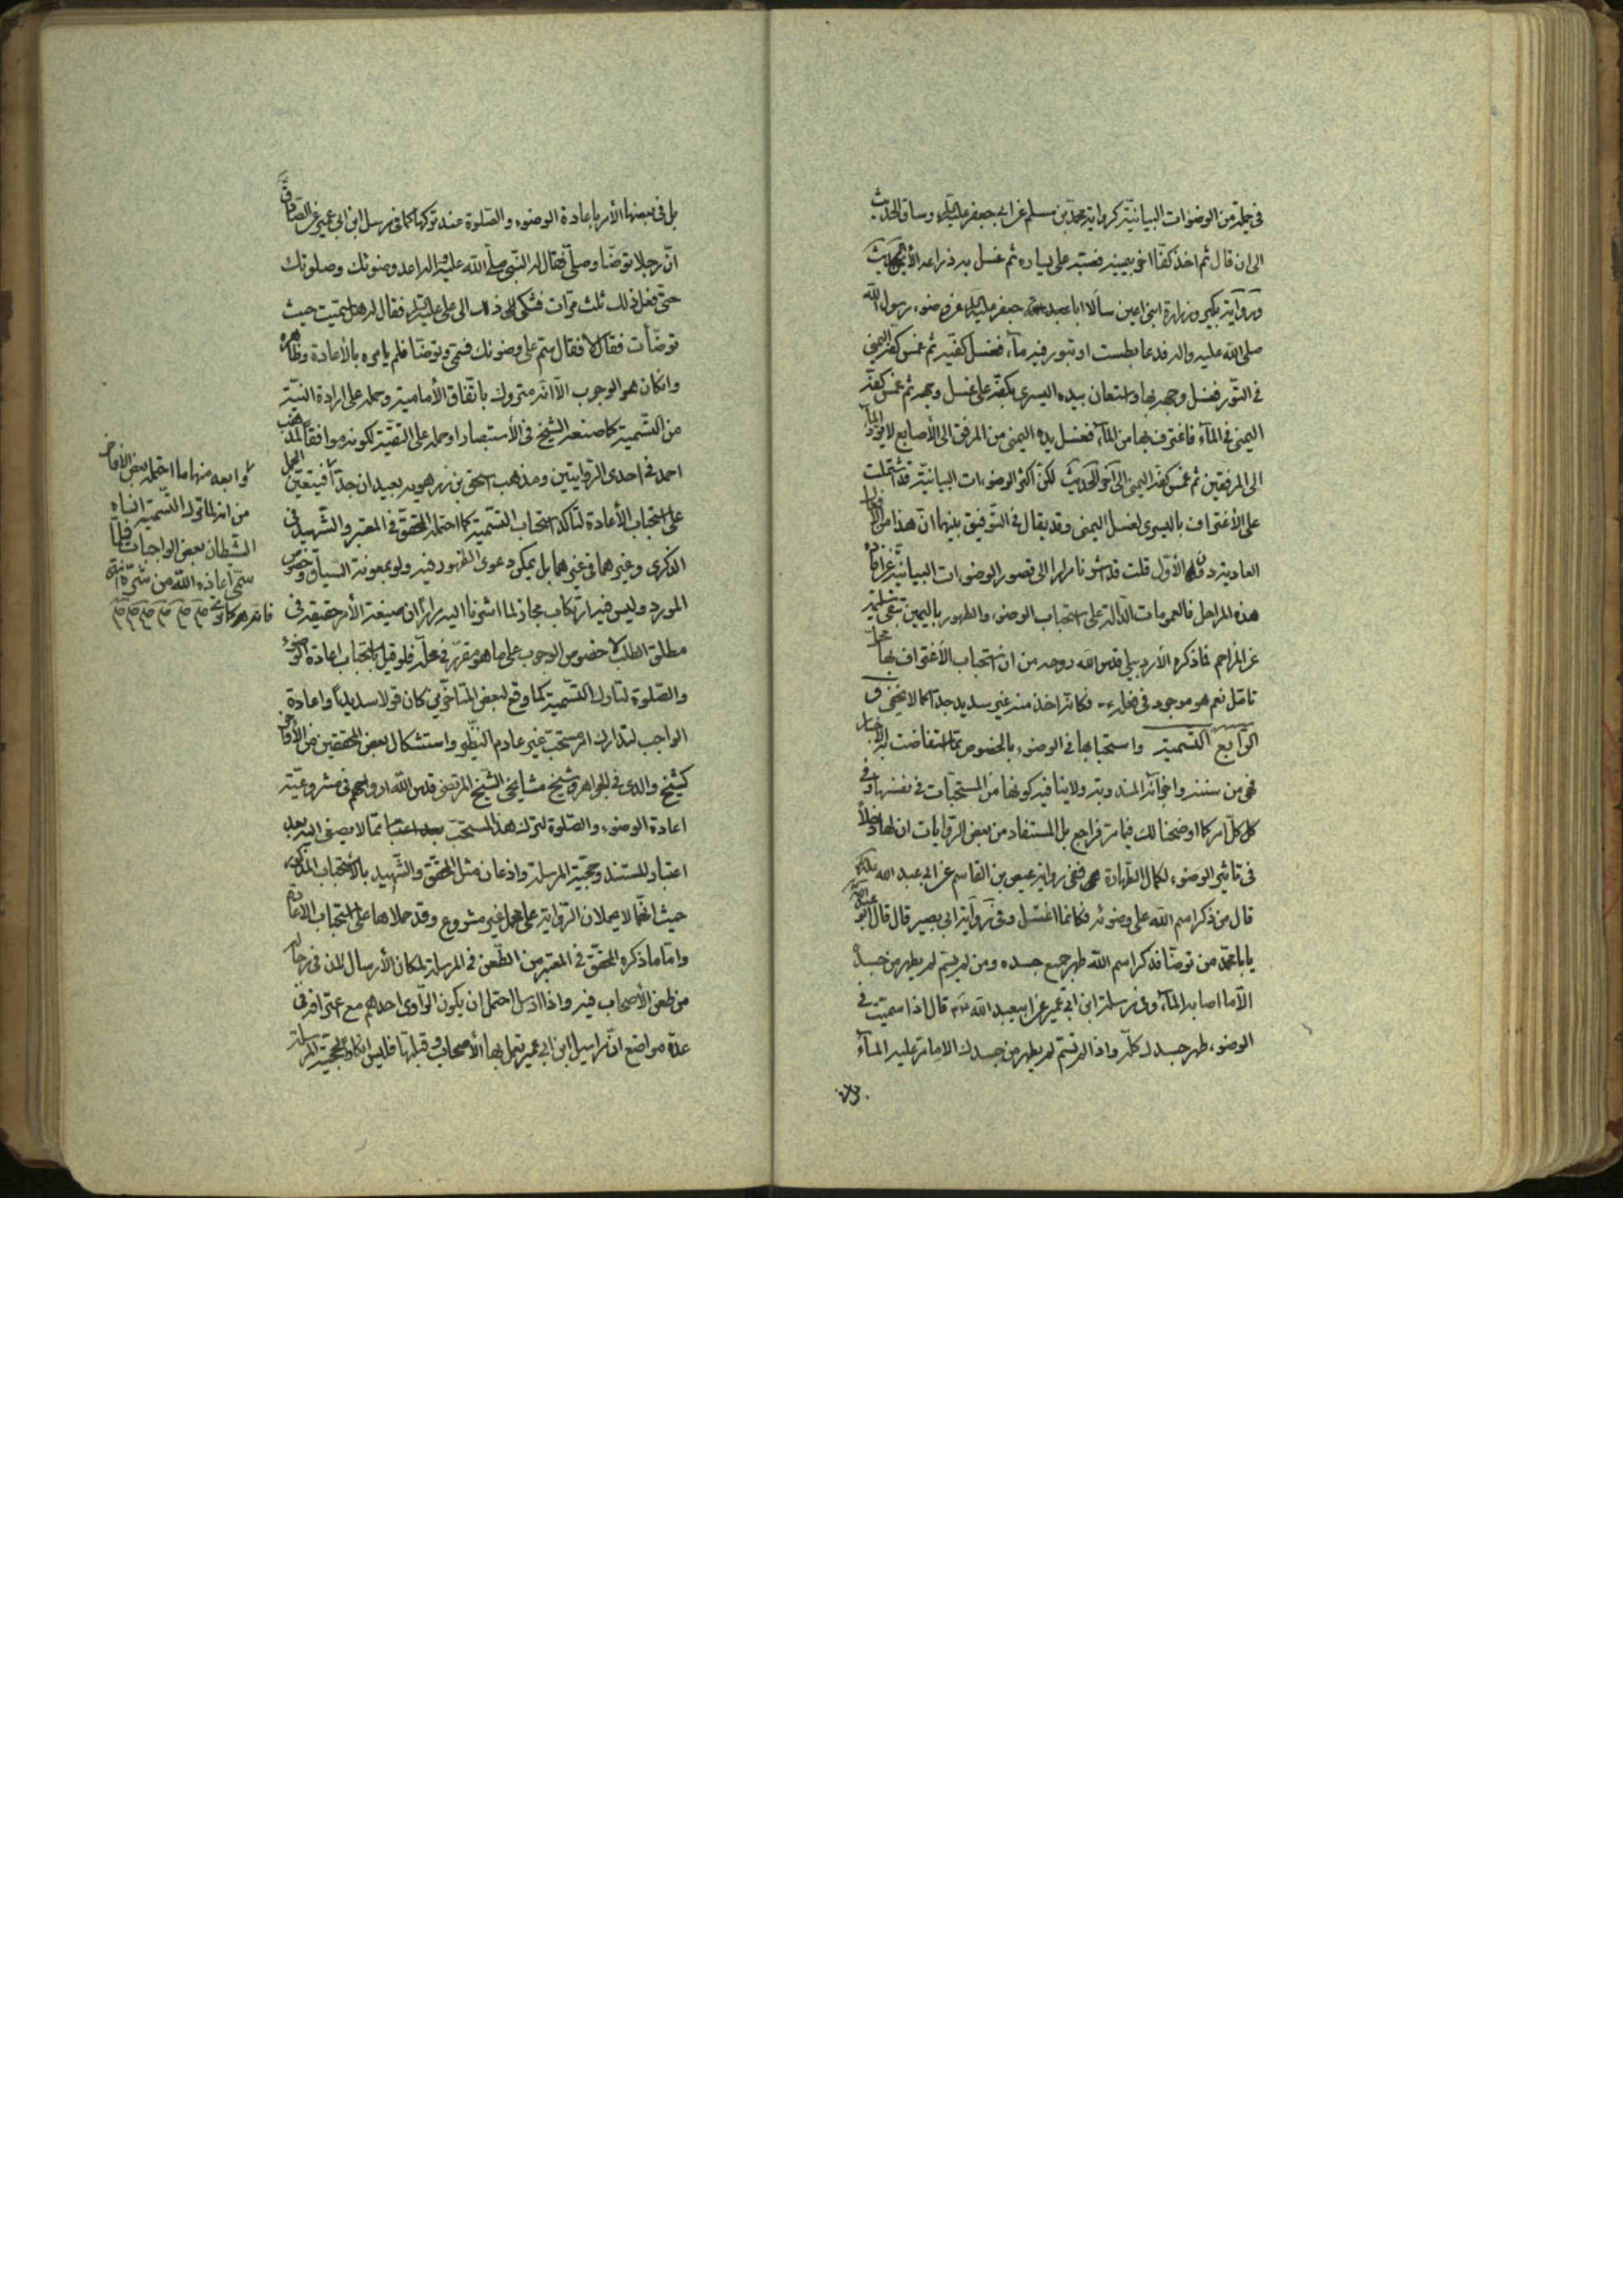 في جملة من الوضوات البيانيّة كرواية محمّد بن مسلم عن ابي جعفر عليه السلم وساق الحديث
الى ان قال ثم اخذ كفّا اخر بيمينه فصبّه على يساره ثم غسل به ذراعه الأيمن الحديث
ورواية بكير وزرارة ابنى اعين سألا ابا جعفر عليه السلم عن وضوء رسول الله
صلى الله عليه واله فدعا بطست او تبور فيه مآء فغسل كفّيه ثم غمس كفّه اليمنى
في التّور فغسل وجهه بها واستعان بيده اليسرى بكفّه على غسل وجهه ثم غمس كفّه
اليمنى في المآء فاغترف بها من المآء فغسل يده اليمنى من المرفق الى الأصابع لا يردّ المآء
الى المرفقين ثم غمس كفّه اليمنى الى آخر الحديث لكن اكثر الوضوءات البيانيّة قد اشتملت
على الأغتراف باليسرى لغسل اليمنى وقد يقال في التّوفيق بينهما انّ هذا من
العادية دون الأوّل قلت قد اشرنا مرارا الى قصور الوضوءات البيانيّة عن افادة
هذه المراحل فالعمومات الدّالة على استحباب الوضوء والطهور باليمين تبقى سليمة
عن المزاحم فما ذكره الأردبيلي قدس الله روحه من ان استحباب الأغتراف بها محلّ
تامّل نعم هو موجود في فعله ع فكانّه اخذ منه غير سديد جدّا كما لا يخفى
الرّابع التّسمية واستحبابها في الوضوء بالخصوص ممّا استفاضت به الأخبار
فهي من سننه واجزآئه المندوبة ولا ينافيه كونها من المستحبّات في نفسها وفي
كل كلّ امر كما اوضحنا لك فيما مرّ فراجع بل المستفاد من بعض الرّوايات ان لها دخلا
في تاثير الوضوء لكمال الطّهارة ففي رواية عيص بن القاسم عن ابي عبد الله عليه السلم
قال من ذكر اسم الله على وضوئه فكانما اغتسل وفي رواية ابي بصير قال قال ابو عبد الله
يا با محمّد من توضّا فذكر اسم الله طهر جميع جسده ومن لم يسمّ لم يطهر من جسده
الّا ما اصابه المآء وفي مرسلة ابن ابي عمير عن ابي عبد الله ع قال اذا سميّت في
الوضوء طهر جسدك كلّه واذا لم تسمّ لم يطهر من جسدك الا ما مرّ عليه المآء
بل في بعضها الأمر باعادة الوضوء والصّلوة عند تركها كما في مرسل ابن ابي عمير عن الصّادق
انّ رجلا توضّا وصلّى فقال له النّبي صلّى الله عليه واله اعد وضوئك وصلوتك
حتى فعل ذلك ثلث مرّات فشكى ذلك الى علي عليه السلم فقال له هل سميّت حيث
توضّات فقال لا فقال سمّ على وضوئك فسمّى وتوضّا فلم يامره بالأعادة وظاهره
وانكان هو الوجوب الّا انّه متروك باتّفاق الأمامية وحمله على ارادة النيّة
من التّسمية كما صنعه الشيخ في الأستبصار او حمله على التقيّة لكونه موافقا لمذهب
احمد في احدى الرّوايتين ومذهب اسحق بن راهويه بعيدان جدّا فيتعيّن الحمل
على استحباب الأعادة لتاكّد استحباب التّسمية كما احتمله المحقّق في المعتبر والشّهيد في
الذكرى وغيرهما في غيرهما بل يمكن دعوى الظهور فيه ولو بمعونة السّياق وخصوص
المورد وليس فيه ارتكاب مجاز لما اشرنا اليه مرارا ان صيغة الأمر حقيقة في
مطلق الطلب لا خصوص الوجوب على ما هو مقرّر في محلّه فلو قيل باستحباب اعادة الوضوء
والصّلوة لتارك التّسمية كما وقع لبعض المتاخّرين كان قولا سديدا واعادة
الواجب لتدارك امر مستحبّ غير عادم النّظير واستشكال بعض المحققين من الأواخر
كشيخ والدي في الجواهر وشيخ مشايخي الشّيخ المرتضى قدس الله ارواحهم في مشروعيّة
اعادة الوضوء والصّلوة لترك هذا المستحبّ ممّا لا يصغى اليه بعد
اعتبار المستند وحجيّة المرسلة واذعان مثل المحقّق والشّهيد بالأستحباب المذكور
حيث انّهما لا يحملان الرّواية على محمل غير مشروع وقد حملاها على استحباب الاعادة
وامّا ما ذكره المحقّق في المعتبر من الطّعن في المرسلة لمكان الأرسال لان في رجاله
من طعن الأصحاب فيه واذا ارسل احتمل ان يكون الرّاوي احدهم مع اعترافه في
عدّة مواضع انّ مراسيل ابن ابي عمير تعمل بها الأصحاب وقبلتها فليس انكاره لحجية المرسلة
وابعد منها ما احتمله بعض الأفاضل
من انه لما ترك التّسمية انساه
الشّيطان بعض الواجبات فلمّا
سمّى اعاذه الله من شرّه انتهى
فانّه هو كما ترى